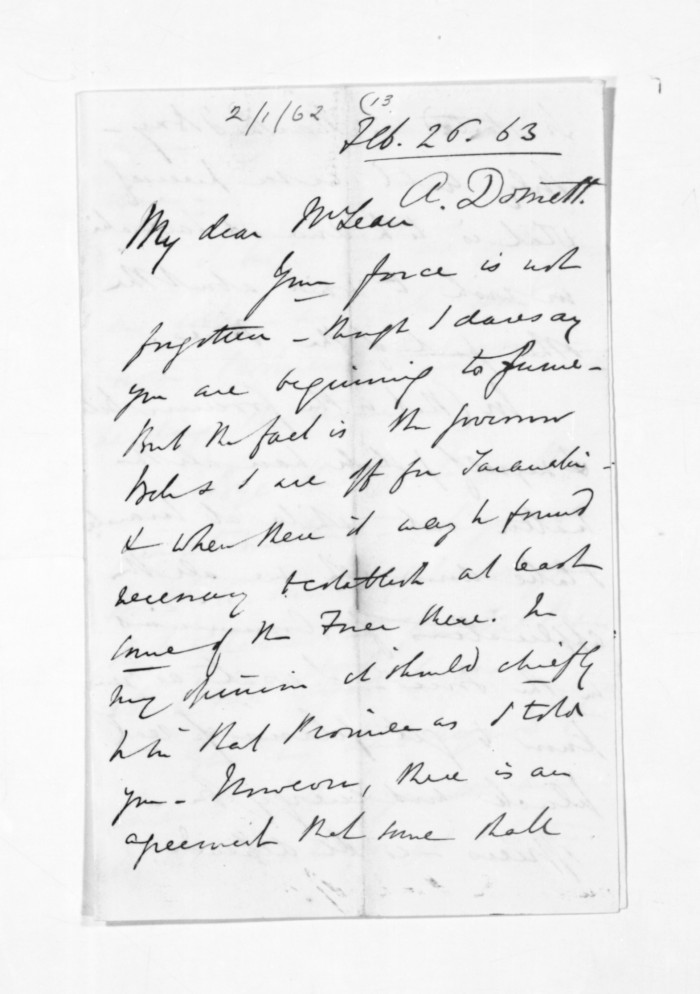 2/1/62 (13
Feb. 26. 63
A. Domett.
My dear McLean
Your force is not
forgotten - though I daresay
you are beginning to fume -
But the fact is the Governor
Bell & I are off for Taranaki -
& when there it may be found
necessary to establish at least
some of the Force there. In
my opinion it should chiefly
be in that Province as I told
you - Moreover, there is an
agreement that some shall